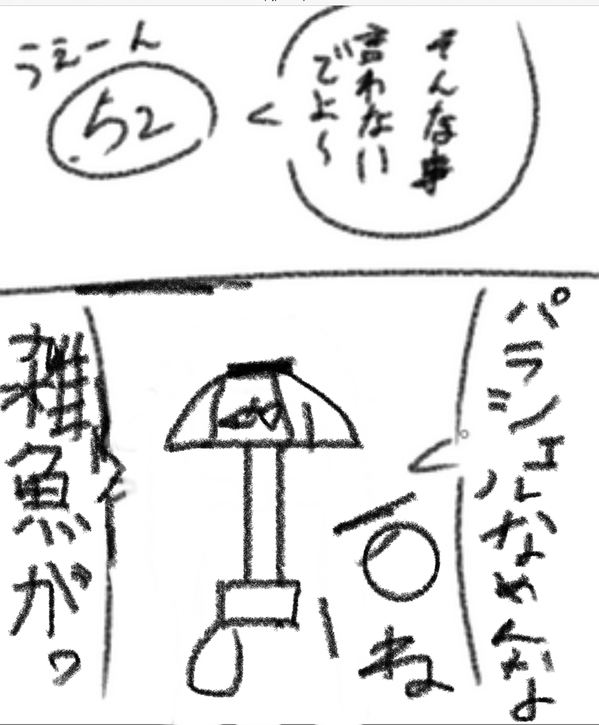 そんな事
言わない
でよ〜
うえーん
52
パラシェルなめんなよ
○ね
雑魚がっ